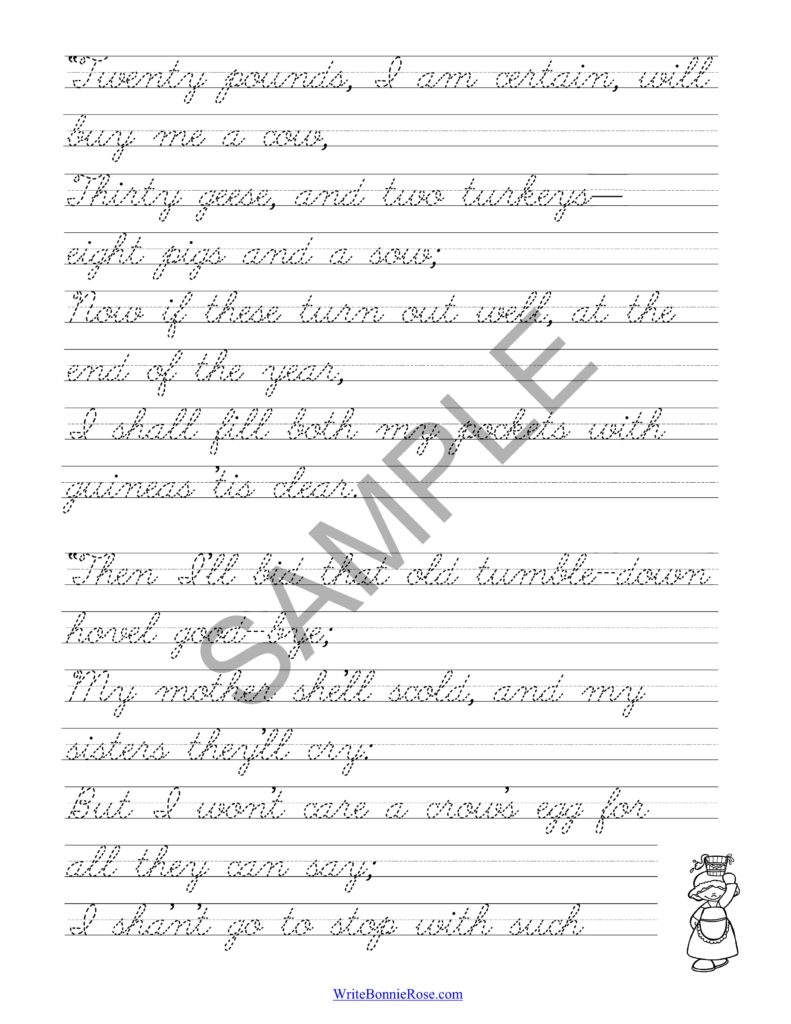 “Twenty pounds, I am certain, will
buy me a cow,
Thirty geese, and two turkeys—
eight pigs and a sow;
Now if these turn out well, at the
end of the year,
I shall fill both my pockets with
guineas 'tis clear.
“Then I'll bid that old tumble-down
hovel good-bye;
My mother she'll scold, and my
sisters they'll cry:
But I won't care a crow's egg for
all they can say;
I sha'n't go to stop with such
SAMPLE
WriteBonnieRose.com